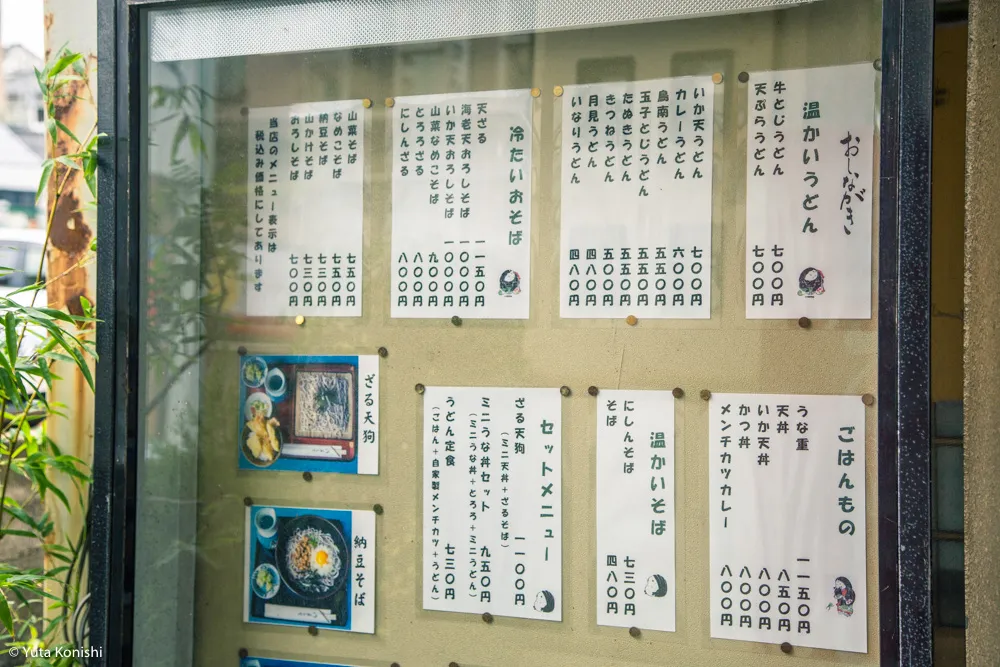 おしながき
温かいうどん
牛とじうどん 七〇〇円
天ぷらうどん 七〇〇円
いか天うどん 七〇〇円
カレーうどん 六〇〇円
鳥南うどん 五五〇円
玉子とじうどん 五五〇円
たぬきうどん 五五〇円
きつねうどん 五五〇円
月見うどん 四八〇円
いなりうどん 四八〇円
冷たいおそば
天ざる 一一五〇円
海老天おろしそば 一〇〇〇円
いか天おろしそば 一〇〇〇円
山菜なめこそば 九〇〇円
とろろざる 八〇〇円
にしんざる 八〇〇円
山菜そば 七五〇円
なめこそば 七五〇円
納豆そば 七三〇円
山かけそば 七三〇円
おろしそば 七〇〇円
当店のメニュー表示は
税込み価格にしてあります
ごはんもの
うな重 一一五〇円
天丼 八五〇円
いか天丼 八〇〇円
かつ丼 八〇〇円
メンチカツカレー 八〇〇円
温かいそば
にしんそば 七三〇円
そば 四八〇円
セットメニュー
ざる天狗 一一〇〇円
（ミニ天丼＋ざるそば）
ミニうな丼セット 九五〇円
（ミニうな丼＋とろろ＋ミニうどん）
うどん定食 七三〇円
（ごはん＋自家製メンチカツ＋うどん）
ざる天狗
納豆そば
© Yuta Konishi